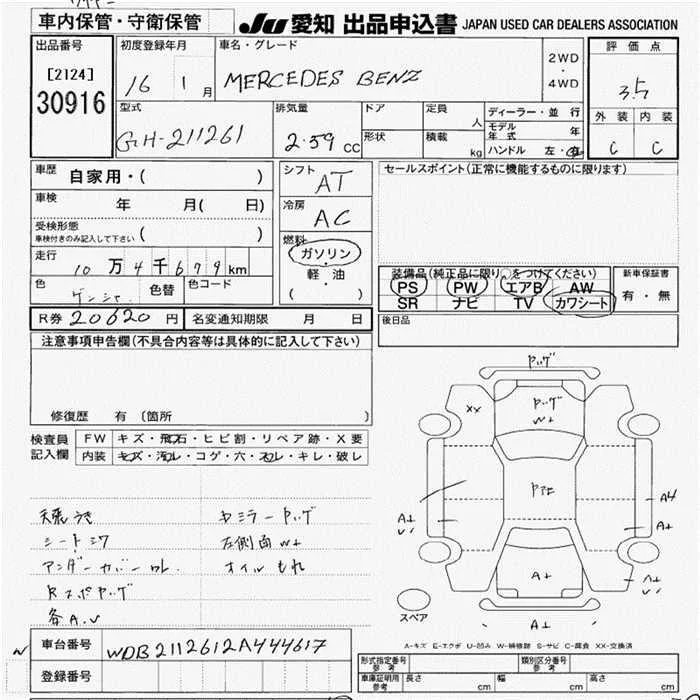 車内保管・守衛保管
JU 愛知 出品申込書 JAPAN USED CAR DEALERS ASSOCIATION
出品番号
[2124]
30916
初度登録年月
16 1 月
車名・グレード
MERCEDES BENZ
2WD
・
4WD
評価点
3.5
外装 内装
C C
型式
GH-211261
排気量
2.59 cc
ドア
形状
定員 人
積載 kg
ディーラー・並行
モデル年式 年
ハンドル 左・右
車歴
自家用・( )
車検 年 月( 日)
受検形態
車検付きのみ記入して下さい ( )
走行
10 万 4 千 6 7 9 km
色
ゲンシャ
色替
色コード
シフト
AT
冷房
AC
燃料
ガソリン
・
軽・油
( )
セールスポイント(正常に機能するものに限ります)
装備品(純正品に限り○をつけてください)
PS PW エアB AW
SR ナビ TV カワシート
新車保証書
有・無
R券 20620 円
名変通知期限 月 日
後日品
注意事項申告欄(不具合内容等は具体的に記入して下さい)
修復歴 有 (箇所
検査員
記入欄
FW キズ・飛石・ヒビ割・リペア跡・X要
内装 キズ・汚レ・コゲ・穴・スレ・キレ・破レ
天張うき
シートシワ
アンダーカバーワレ
Rスポヤッゲ
各A.U
左側面W+
オイルもれ
ヤッゲ
XX
ヤッゲ
W+
A4
A+
A+
A+
A+
スペア
A-キズ E-エクボ U-凹み W-補修跡 S-サビ C-腐食 XX-交換済
車台番号
WDB2112612A444617
登録番号
型式指定番号
参考
類別区分番号
参考
車庫証明用
参考
長さ cm 幅 cm 高さ cm